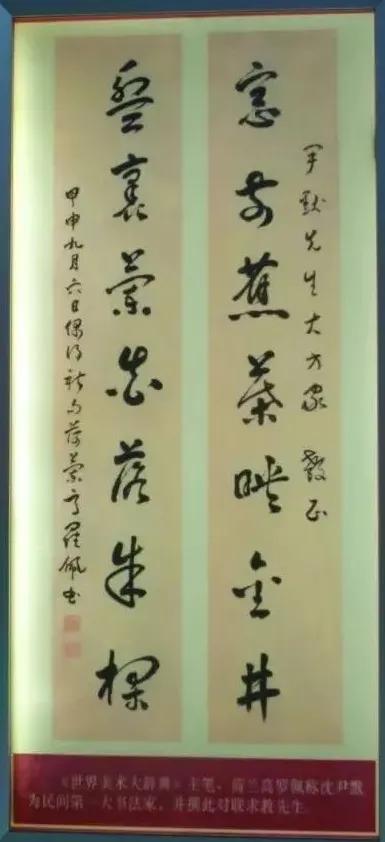 尹默先生大方家 教正
窗前蕉葉映金井
裏蘭落朱
甲申九月六日偶得新句荷蘭高羅佩書
《世界美术大辞典》主笔、荷兰高罗佩称沈尹默
为民间第一大书法家，并撰此对联求教先生。